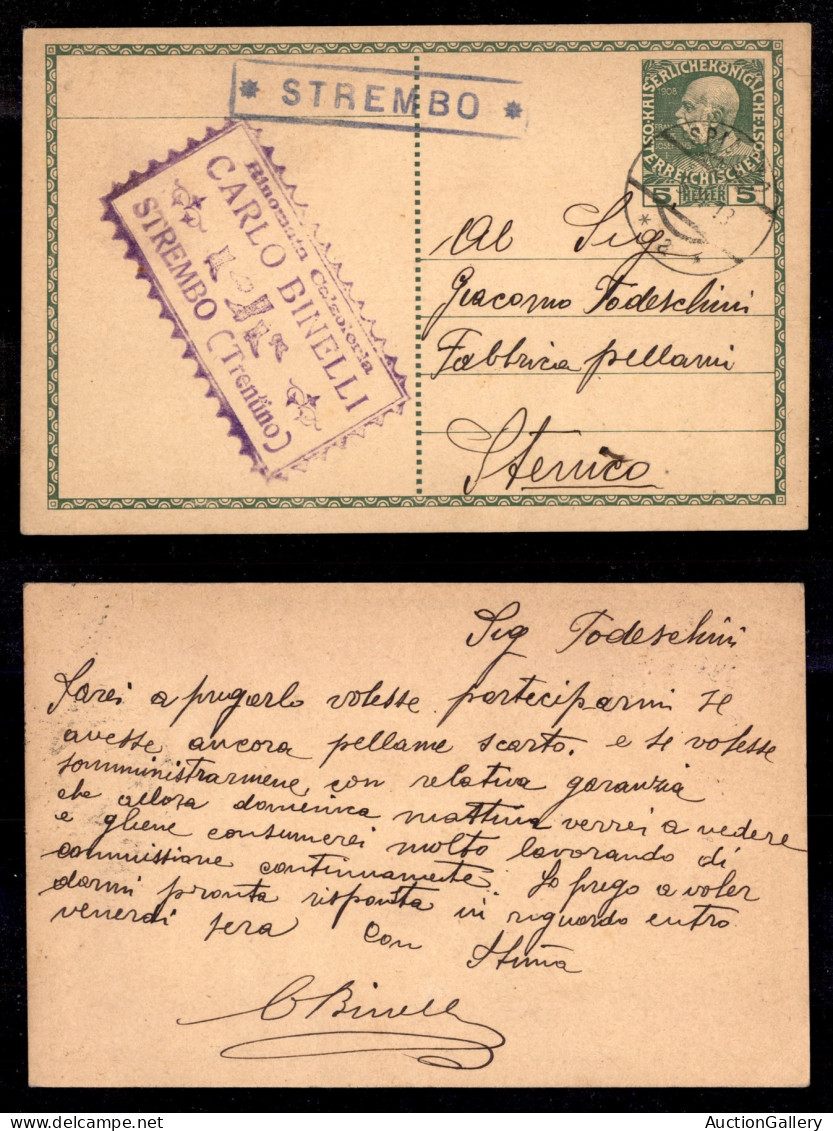 * STREMBO *
Rinomata Calzoleria
CARLO BINELLI
STREMBO (Trentino)
1908
OST·KAISERLICHEKÖNIGLICHE
ERREICHISCHEP
5 HELLER 5
Al Sig
Giacomo Todeschini
Fabbrica pellami
Stenico
Sig Todeschini
Sarei a pregarlo volesse parteciparmi se
avesse ancora pellame scarto. e se volesse
somministrarmene con relativa garanzia
che allora domenica mattina verrei a vedere
e gliene consumerei molto lavorando di
commissione continuamente. Lo prego a voler
darmi pronta risposta in riguardo entro
venerdi sera con Stima
C Binelli
AuctionGallery